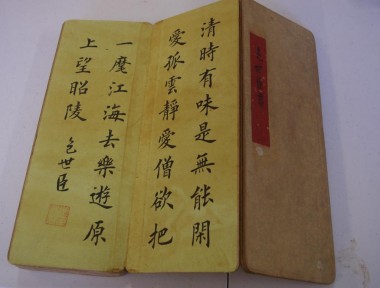 清時有味是無能閑
愛孤雲靜愛僧欲把
一麾江海去樂遊原
上望昭陵 包世臣